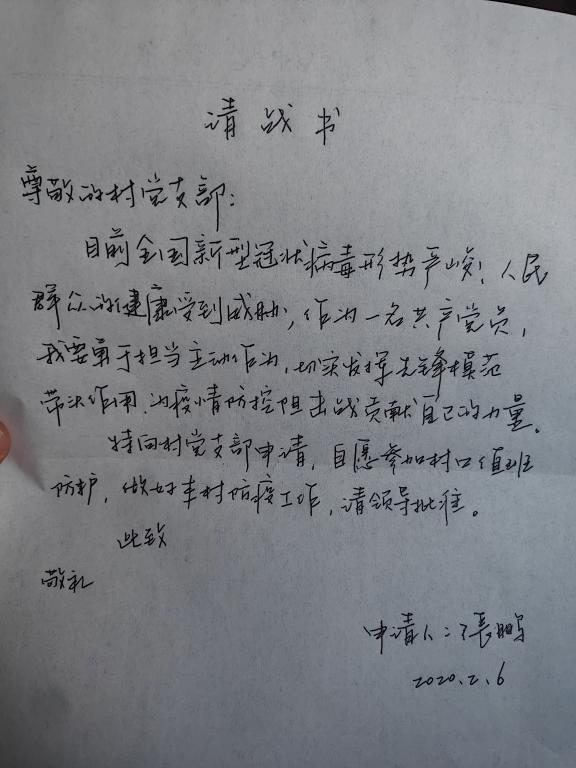 请战书
尊敬的村党支部:
目前全国新型冠状病毒形势严峻,人民
群众的健康受到威胁,作为一名共产党员,
我要勇于担当主动作为,切实发挥先锋模范
带头作用,为疫情防控阻击战贡献自己的力量。
特向村党支部申请,自愿参加村口值班
防护,做好本村防疫工作,请领导批准。
此致
敬礼
申请人:张鹏
2020.2.6